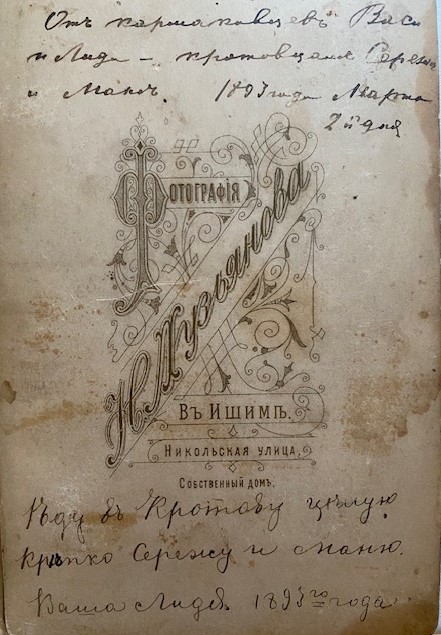 Отъ кармаковцевъ Васи
и Лиды – кротовцамъ Сережѣ
и Манѣ. 1893 года Марта
2й дня
Фотографія
Н. Лузьянова
Въ Ишимѣ.
Никольская улица,
Собственный домъ.
Ѣду въ Кротову цѣлую
крѣпко Сережу и Маню.
Ваша Лидія 1893го года.